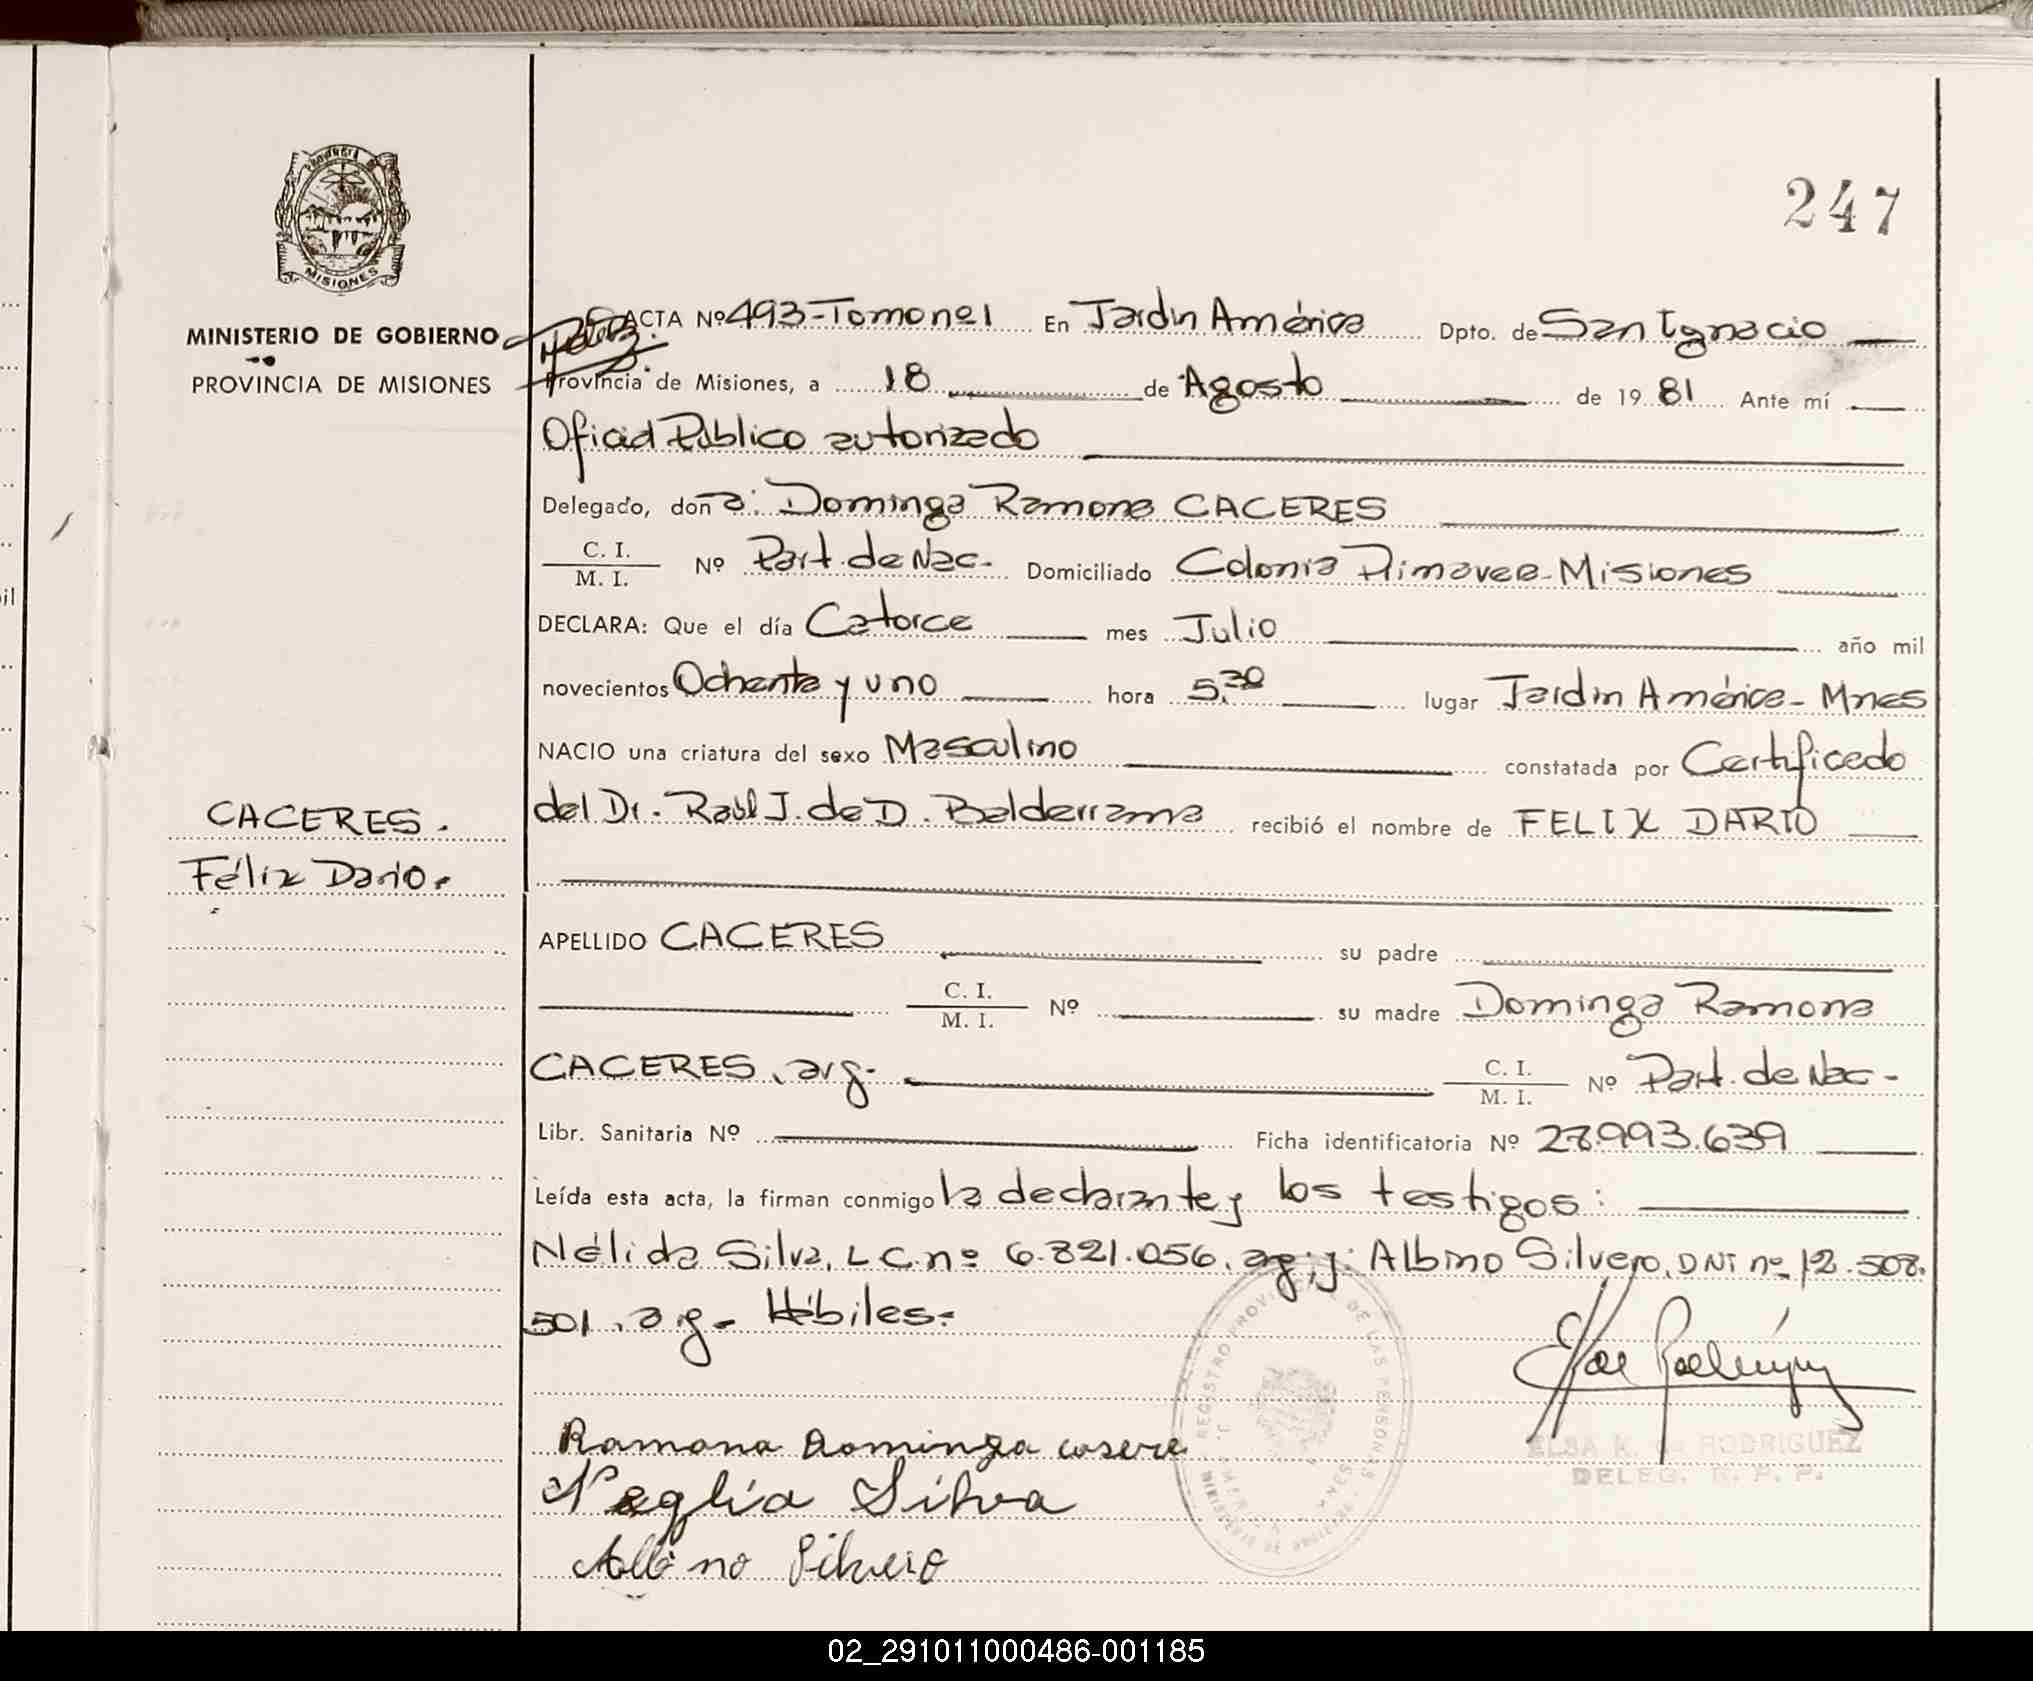 247
PROVINCIA DE
MISIONES
MINISTERIO DE GOBIERNO
PROVINCIA DE MISIONES
ACTA Nº 493-Tomo nº1 En Jardín América Dpto. de San Ignacio
Provincia de Misiones, a 18 de Agosto de 1981 Ante mí
Oficial Público autorizado
Delegado, don a: Dominga Ramona CACERES
C. I.
M. I. Nº Part. de Nac. Domiciliado Colonia Misiones
DECLARA: Que el día Catorce mes Julio año mil
novecientos Ochenta y uno hora 5,30 lugar Jardín América- Mnes
NACIO una criatura del sexo Masculino constatada por Certificado
del Dr. Raúl J. de D. Balderrama recibió el nombre de FELIX DARIO
CACERES.
Félix Dario.
APELLIDO CACERES su padre
C. I.
M. I. Nº su madre Dominga Ramona
CACERES, arg. C. I.
M. I. Nº Part. de Nac-
Libr. Sanitaria Nº Ficha identificatoria Nº 28.993.639
Leída esta acta, la firman conmigo la declarante y los testigos:
Nélida Silva, L C. nº 6.821.056, arg; y: Albino Silvero, DNI nº 12.508.
501, arg- Hábiles.
Ramona Dominga casere
Silva
Albino Silvero
ELSA K. de RODRIGUEZ
DELEG. R. P. P.
REGISTRO PROVINCIAL DE LAS PERSONAS
02_291011000486-001185